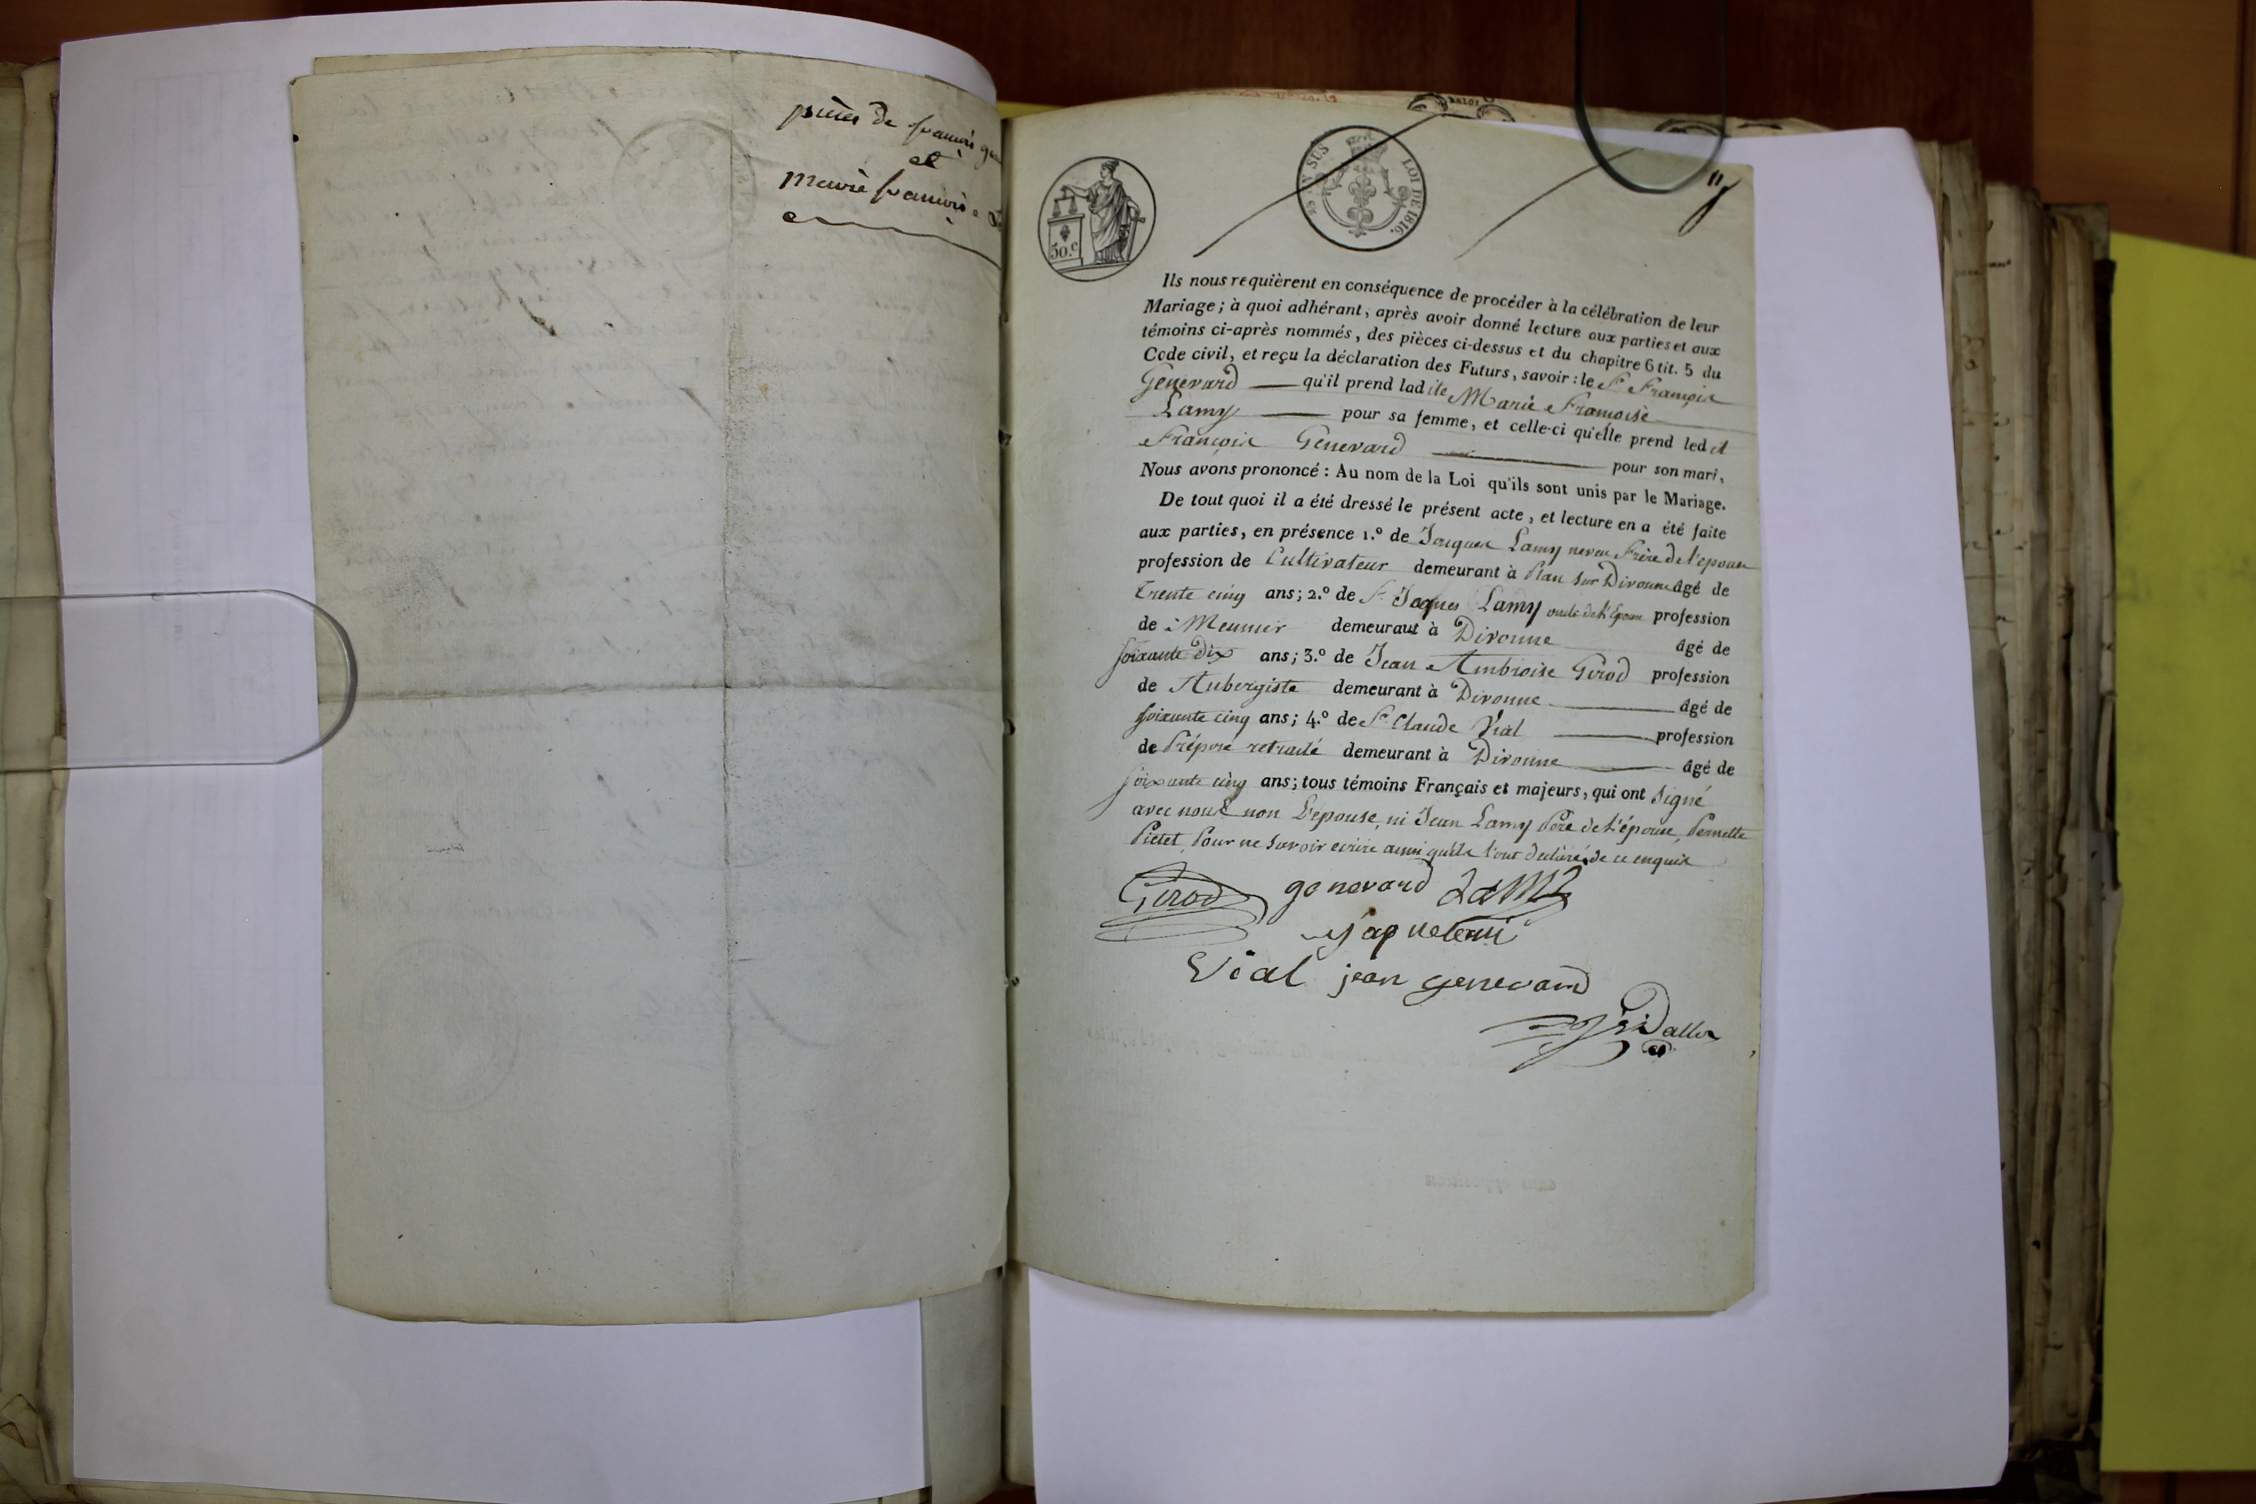 pièces de francois
et
Marie francoise
50.c
EN SUS
LOI DE 1816.
Ils nous requièrent en conséquence de procéder à la célébration de leur
Mariage; à quoi adhérant, après avoir donné lecture aux parties et aux
témoins ci-après nommés, des pièces ci-dessus et du chapitre 6 tit. 5 du
Code civil, et reçu la déclaration des Futurs, savoir: le Sr. François
Genevard qu'il prend ladite Marie Françoise
Lamy pour sa femme, et celle-ci qu'elle prend ledit
François Genevard pour son mari,
Nous avons prononcé: Au nom de la Loi qu'ils sont unis par le Mariage.
De tout quoi il a été dressé le présent acte, et lecture en a été faite
aux parties, en présence 1.º de Jacques Lamy neveu Frère de l'epouse
profession de Cultivateur demeurant à Plan sur Divonne âgé de
Trente cinq ans; 2.º de Sr. Jaques Lamy oncle de l'Epouse profession
de Meunier demeurant à Divonne âgé de
soixante Dix ans; 3.º de Jean Ambroise Girod profession
de Aubergiste demeurant à Divonne âgé de
soixante cinq ans; 4.º de Sr. Claude Vial profession
de Préposé retraité demeurant à Divonne âgé de
soixante cinq ans; tous témoins Français et majeurs, qui ont signé
avec nous non L'épouse, ni Jean Lamy Père de L'épouse, Pernette
Pictet, Pour ne savoir ecrire ainsi qu'ils l'ont declaré de ce enquis
Girod genevard LAMY
Vial jean genevard